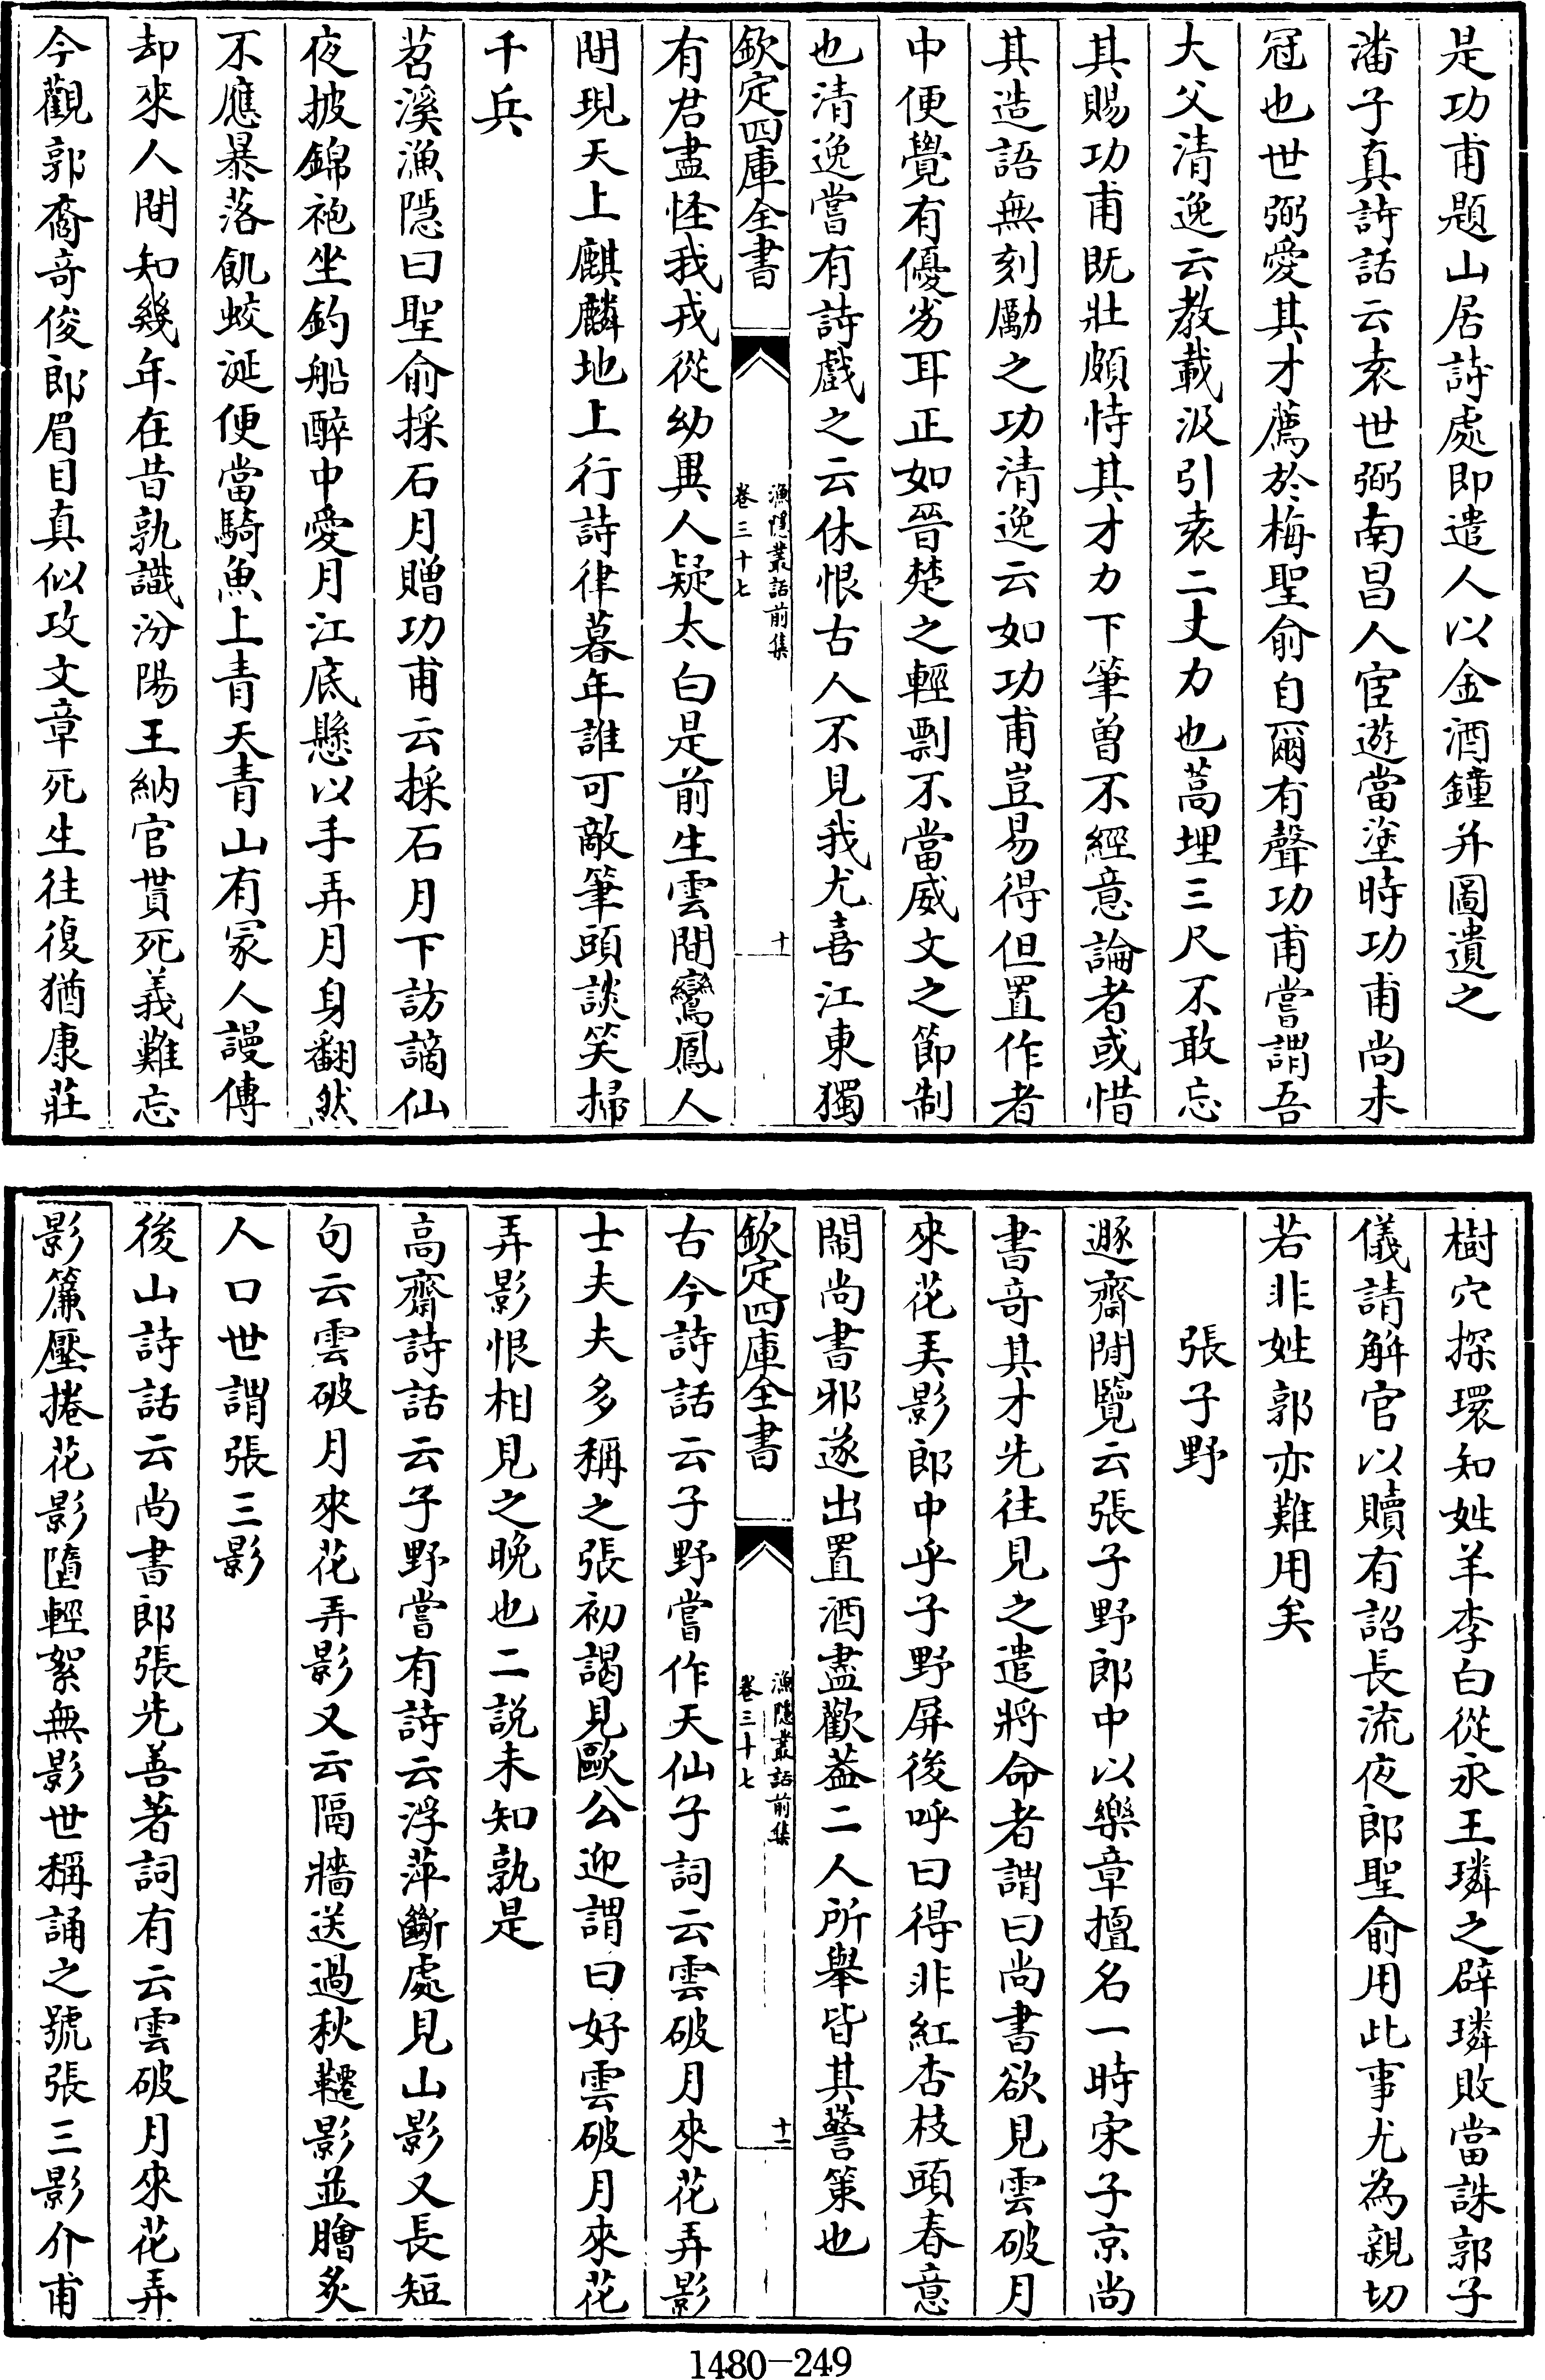 是功甫題山居詩處即遣人以金酒鐘并圖遺之
潘子真詩話云袁世弼南昌人宦遊當塗時功甫尚未
冠也世弼愛其才薦於梅聖俞自爾有聲功甫嘗謂吾
大父清逸云教載汲引袁二丈力也蒿埋三尺不敢忘
其賜功甫既壯頗恃其才力下筆曾不經意論者或惜
其造語無刻勵之功清逸云如功甫豈易得但置作者
中便覺有優劣耳正如晉楚之輕剽不當威文之節制
也清逸嘗有詩戲之云休恨古人不見我尤喜江東獨
欽定四庫全書
漁隱叢話前集
卷三十七
十
有君盡怪我戎從幼異人疑太白是前生雲間鸞鳳人
間現天上麒麟地上行詩律暮年誰可敵筆頭談笑掃
千兵
苕溪漁隱曰聖俞採石月贈功甫云採石月下訪謫仙
夜披錦袍坐釣船醉中愛月江底懸以手弄月身翻然
不應暴落飢蛟涎便當騎魚上青天青山有冢人謾傳
却來人間知幾年在昔孰識汾陽王納官貰死義難忘
今觀郭裔奇俊郎眉目真似攻文章死生往復猶康莊
樹穴探環知姓羊李白從永王璘之辟璘敗當誅郭子
儀請解官以贖有詔長流夜郎聖俞用此事尤為親切
若非姓郭亦難用矣
張子野
遯齋閒覽云張子野郎中以樂章擅名一時宋子京尚
書奇其才先往見之遣將命者謂曰尚書欲見雲破月
來花弄影郎中乎子野屏後呼曰得非紅杏枝頭春意
鬧尚書邪遂出置酒盡歡蓋二人所舉皆其警策也
欽定四庫全書
漁隱叢話前集
卷三十七
十一
古今詩話云子野嘗作天仙子詞云雲破月來花弄影
士夫夫多稱之張初謁見歐公迎謂曰好雲破月來花
弄影恨相見之晚也二說未知孰是
高齋詩話云子野嘗有詩云浮萍斷處見山影又長短
句云雲破月來花弄影又云隔牆送過秋韆影並膾炙
人口世謂張三影
後山詩話云尚書郎張先善著詞有云雲破月來花弄
影簾壓捲花影墮輕絮無影世稱誦之號張三影介甫
1480-249